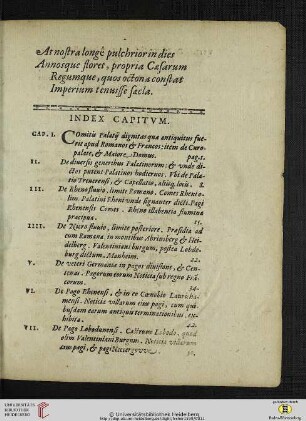 At nostra longè pulchrior in dies
Annosque floret, propria Cæsarum
Regumque, quos octona constat
Imperium tenuisse sæcla.
INDEX CAPITVM.
CAP. I. Comitis Palatij dignitas qua antiquitus fue-
rit apud Romanos & Francos: item de Curo-
palate, & Maiore Domus. pag. 1.
II. De diversis generibus Palatinorum: & unde di-
cti Palatini hodierni. Vbi de Pala-
tio Treverensi, & Capellatio, aliisq. locis.
III. De Rheno fluvio, limite Romano. Comes Rhenen-
sis. Palatini Rheni unde signanter dicti. Pagi
Rhenensis Comes. Rheni illabentia flumina
præcipua.
IIII. De Nicro fluvio, limite posteriore. Præsidia ad
eum Romana in montibus Abrinsberg & Hei-
delberg. Valentiniani burgum, postea Lobde-
burg dictum. Manheim. 22.
V. De veteri Germania in pagos divisione, & Cen-
tenas. Pagorum eorum Notitia sub regno Fran-
corum.
VI. De Pago Rhenensi, & in eo Cœnobio Lauresha-
mensi. Noticia villarum eius pagi, cum qui-
busdam earum antiquis terminationibus ex-
hibita.
VII. De Pago Lobodunensi. Castrum Lobodo, quod
olim Valentiniani Burgum. Noticia villarum
eius pagi, & pagi Nicergowe.
UNIVERSITÄTS-
BIBLIOTHEK
HEIDELBERG
© Universitätsbibliothek Heidelberg